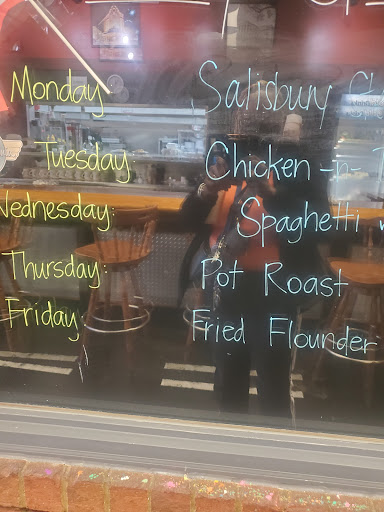 Monday Salisbury
Tuesday Chicken -n-
Wednesday: Spaghetti
Thursday: Pot Roast
Friday: Fried Flounder